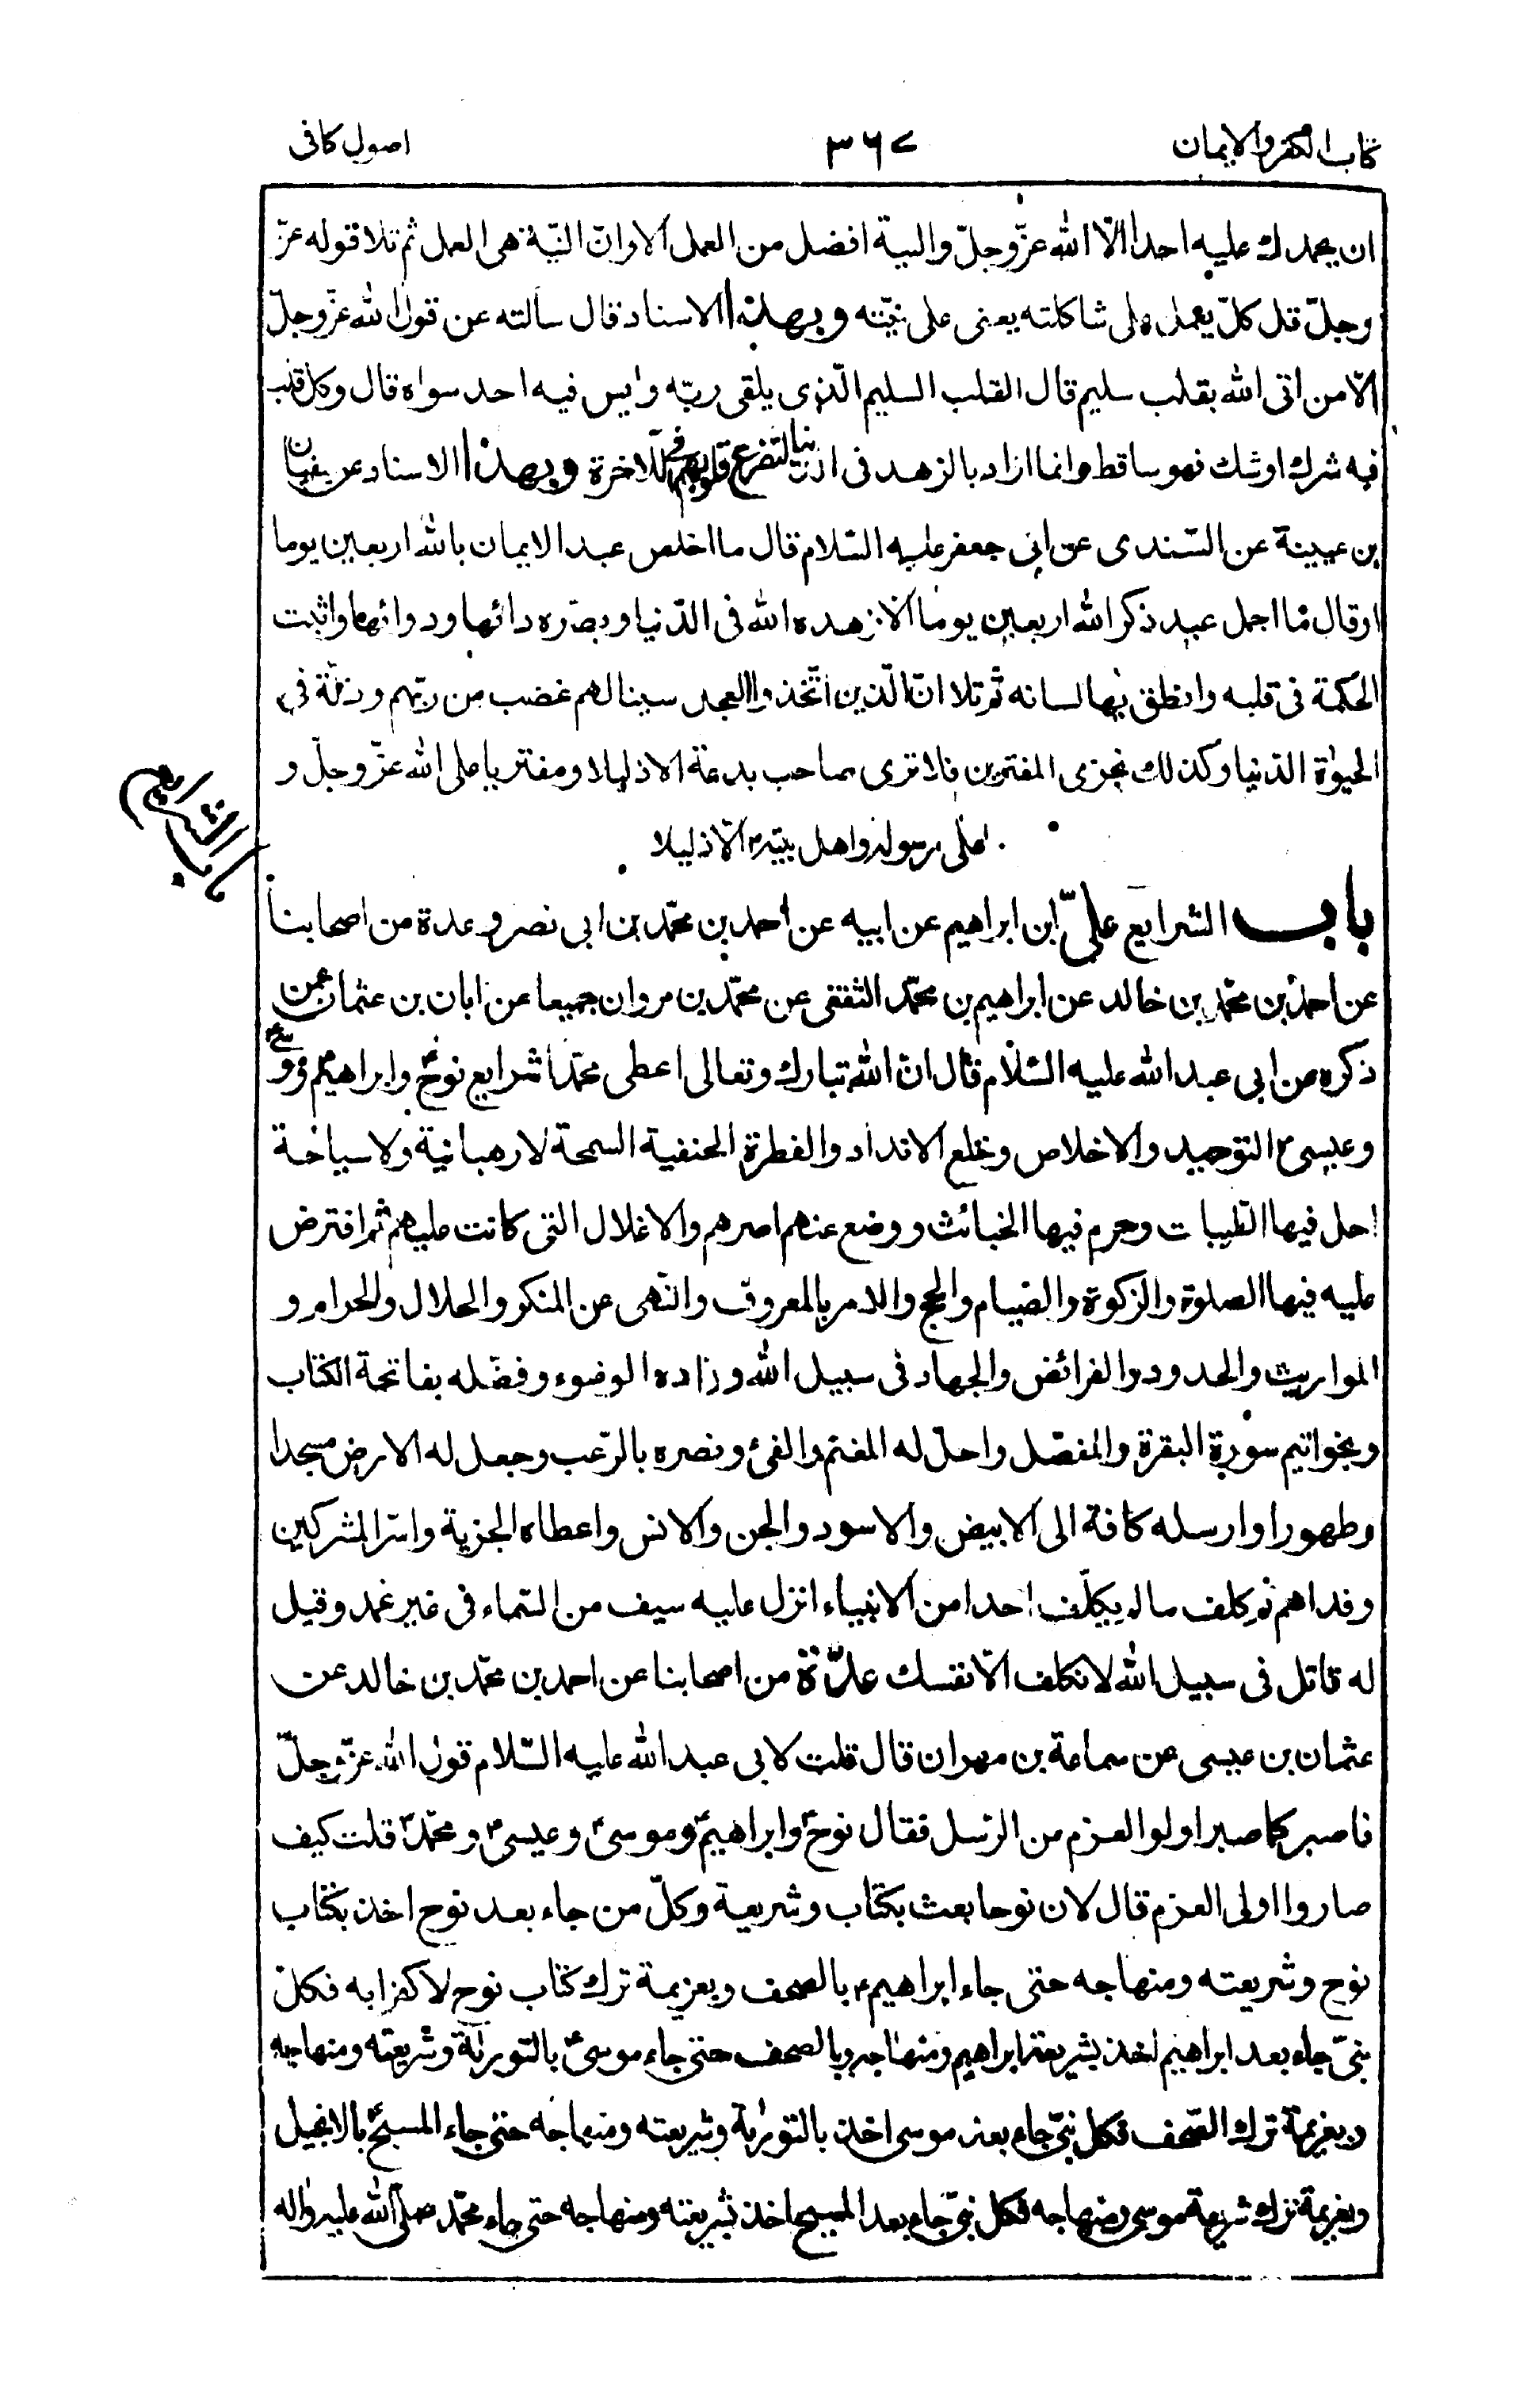 كتاب الكفر والايمان
٣٦٧
اصول كافى
ان يحمدك عليه احد الّا الله عزّ وجلّ والنية افضل من العمل الا وانّ النيّة هى العمل ثم تلا قوله عزّ
وجلّ قل كلّ يعمل على شاكلته يعنى على نيّته وبهذا الاسناد قال سألته عن قول الله عزّ وجلّ
الّا من اتى الله بقلب سليم قال القلب السليم الّذى يلقى ربّه وليس فيه احد سواه قال وكل قلب
فيه شرك او شك فهو ساقط وانما اراد بالزهد فى الدنيا لتفرغ قلوبهم للآخرة وبهذا الاسناد عن سفيان
بن عيينة عن السّندى عن ابى جعفر عليه السّلام قال ما اخلص عبد الايمان بالله اربعين يوما
او قال ما اجمل عبد ذكر الله اربعين يوما الّا زهده الله فى الدّنيا وبصّره دائها ودوائها واثبت
الحكمة فى قلبه وانطق بها لسانه ثم تلا انّ الّذين اتّخذوا العجل سينالهم غضب من ربّهم وذلّة فى
الحيوة الدنيا وكذلك نجزى المفترين فلا ترى صاحب بدعة الا ذليلا ومفتريا على الله عزّ وجلّ و
على رسوله واهل بيته ع الّا ذليلا
باب الشرايع
باب الشرايع علىّ ابن ابراهيم عن ابيه عن احمد بن محمّد بن ابى نصر وعدة من اصحابنا
عن احمد بن محمّد بن خالد عن ابراهيم بن محمّد الثقفى عن محمّد بن مروان جميعا عن ابان بن عثمان عمن
ذكره عن ابى عبد الله عليه السّلام قال انّ الله تبارك وتعالى اعطى محمّدا شرايع نوح وابراهيم وموسى
وعيسى ع التوحيد والاخلاص وخلع الانداد والفطرة الحنفية السمحة لا رهبانية ولا سياحة
احل فيها الطيبات وحرم فيها الخبائث ووضع عنهم اصرهم والاغلال التى كانت عليهم ثم افترض
عليه فيها الصلوة والزكوة والصيام والحج والامر بالمعروف والنّهى عن المنكر والحلال والحرام و
المواريث والحدود والفرائض والجهاد فى سبيل الله وزاده الوضوء وفضّله بفاتحة الكتاب
وبخواتيم سورة البقرة والمفصّل واحلّ له المغنم والفىء ونصره بالرّعب وجعل له الارض مسجدا
وطهورا وارسله كافة الى الابيض والاسود والجن والانس واعطاه الجزية واسر المشركين
وفداهم ثم كلف ما لم يكلّف احدا من الانبياء انزل عليه سيف من السّماء فى غير غمد وقيل
له قاتل فى سبيل الله لا تكلف الّا نفسك عدّة من اصحابنا عن احمد بن محمّد بن خالد عن
عثمان بن عيسى عن سماعة بن مهران قال قلت لابى عبد الله عليه السّلام قول الله عزّ وجلّ
فاصبر كما صبر اولوا العزم من الرّسل فقال نوح وابراهيم وموسى وعيسى ومحمّد قلت كيف
صاروا اولى العزم قال لان نوحا بعث بكتاب وشريعة وكلّ من جاء بعد نوح اخذ بكتاب
نوح وشريعته ومنهاجه حتى جاء ابراهيم ع بالصحف وبعزيمة ترك كتاب نوح لا كفرا به فكل
نبىّ جاء بعد ابراهيم اخذ بشريعة ابراهيم ومنهاجه وبالصحف حتى جاء موسى بالتورية وشريعته ومنهاجه
وبعزيمة ترك الصّحف فكل نبىّ جاء بعد موسى اخذ بالتورية وشريعته ومنهاجه حتى جاء المسيح بالانجيل
وبعزيمة ترك شريعة موسى ومنهاجه فكل نبىّ جاء بعد المسيح اخذ بشريعته ومنهاجه حتى جاء محمّد صلى الله عليه واله